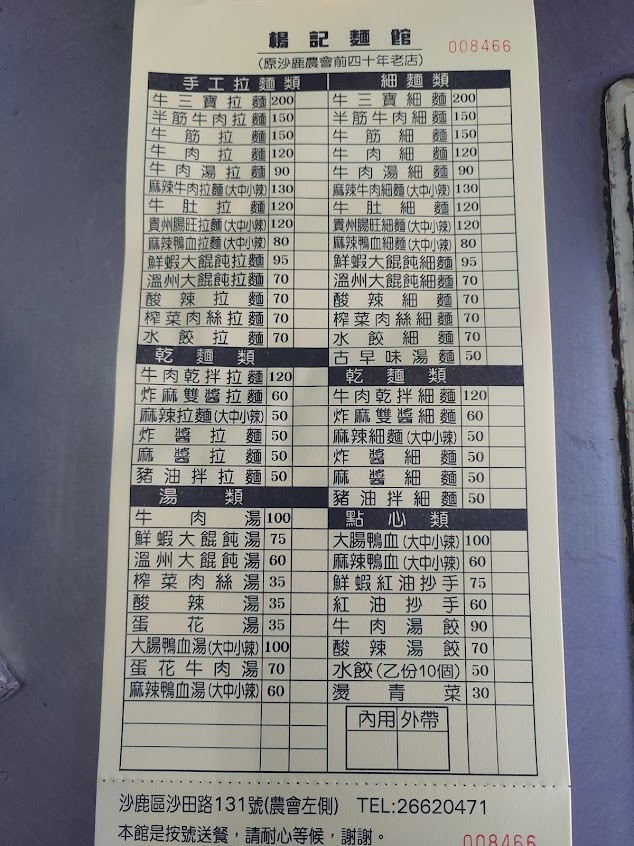 楊記麵館
008466
(原沙鹿農會前四十年老店)
手工拉麵類
牛三寶拉麵 200
半筋牛肉拉麵 150
牛筋拉麵 150
牛肉拉麵 120
牛肉湯拉麵 90
麻辣牛肉拉麵(大中小辣) 130
牛肚拉麵 120
貴州腸旺拉麵(大中小辣) 120
麻辣鴨血拉麵(大中小辣) 80
鮮蝦大餛飩拉麵 95
溫州大餛飩拉麵 70
酸辣拉麵 70
榨菜肉絲拉麵 70
水餃拉麵 70
乾麵類
牛肉乾拌拉麵 120
炸麻雙醬拉麵 60
麻辣拉麵(大中小辣) 50
炸醬拉麵 50
麻醬拉麵 50
豬油拌拉麵 50
湯類
牛肉湯 100
鮮蝦大餛飩湯 75
溫州大餛飩湯 60
榨菜肉絲湯 35
酸辣湯 35
蛋花湯 35
大腸鴨血湯(大中小辣) 100
蛋花牛肉湯 70
麻辣鴨血湯(大中小辣) 60
細麵類
牛三寶細麵 200
半筋牛肉細麵 150
牛筋細麵 150
牛肉細麵 120
牛肉湯細麵 90
麻辣牛肉細麵(大中小辣) 130
牛肚細麵 120
貴州腸旺細麵(大中小辣) 120
麻辣鴨血細麵(大中小辣) 80
鮮蝦大餛飩細麵 95
溫州大餛飩細麵 70
酸辣細麵 70
榨菜肉絲細麵 70
水餃細麵 70
古早味湯麵 50
乾麵類
牛肉乾拌細麵 120
炸麻雙醬細麵 60
麻辣細麵(大中小辣) 50
炸醬細麵 50
麻醬細麵 50
豬油拌細麵 50
點心類
大腸鴨血(大中小辣) 100
麻辣鴨血(大中小辣) 60
鮮蝦紅油抄手 75
紅油抄手 60
牛肉湯餃 90
酸辣湯餃 70
水餃(乙份10個) 50
燙青菜 30
內用 外帶
沙鹿區沙田路131號(農會左側) TEL:26620471
本館是按號送餐，請耐心等候，謝謝。
008466